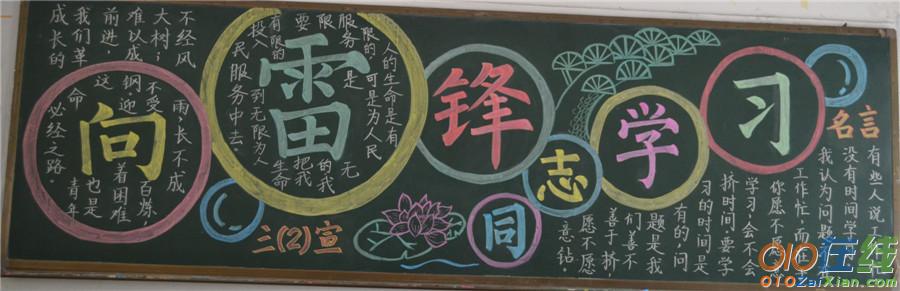 向雷锋同志学习
不经风雨,长不成
大树;不受百炼,
难以成钢迎着困难
前进这也是
我们革命青年
成长的必经之路。
人的生命是有
限的,可是为人民
服务是无
限的我
要把我
有限的生命
投入到无限为人
民服务中去。
三(2)宣
名言
有些人说工
没有时间学
我认为问题
工作忙,而在
你愿不愿
学习,会不会
挤时间。要学
习的时间是
有的,问
题是我
们善不
善于挤
愿不愿
意钻。
010在线
010ZaiXian.com